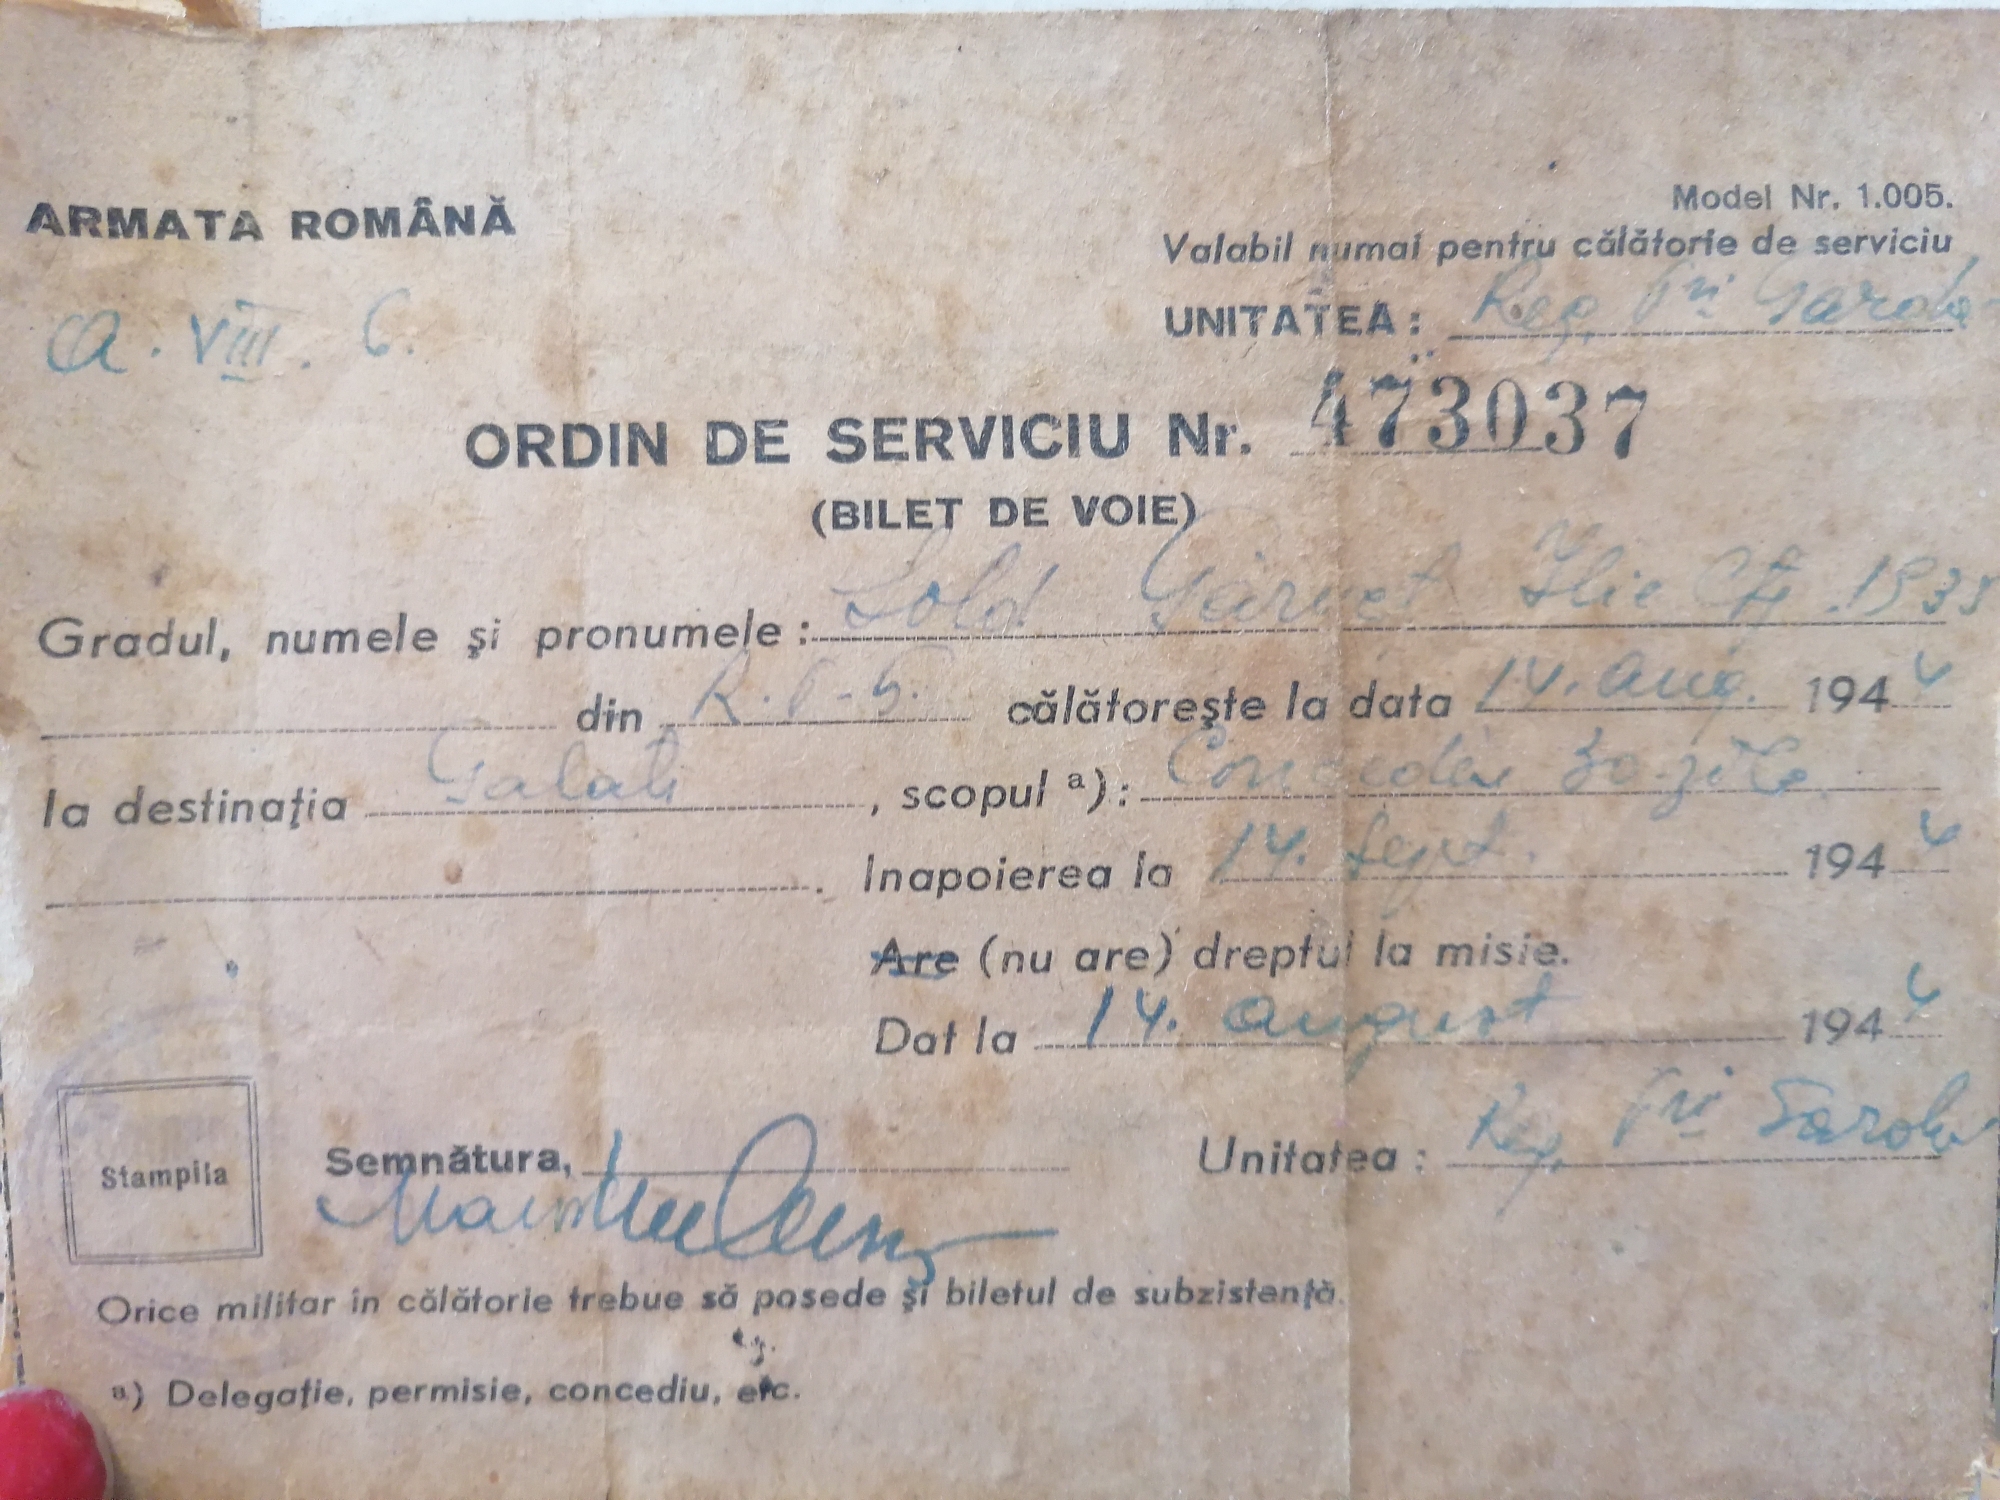 ARMATA ROMÂNĂ
Model Nr. 1.005.
Valabil numai pentru călătorie de serviciu
A. VIII. 6.
UNITATEA: Reg.
ORDIN DE SERVICIU Nr. 473037
(BILET DE VOIE)
Gradul, numele și pronumele: Sold Ilie Ctg. 1933
din călătorește la data 14. Aug. 1944
la destinația Galati, scopul a): Concediu 30 zile
. Inapoierea la 14. Sept. 1944
Are (nu are) dreptul la misie.
Dat la 14. August 1944
Stampila
Semnătura,
Unitatea: Reg.
Orice militar în călătorie trebue să posede și biletul de subzistență.
a) Delegație, permisie, concediu, etc.